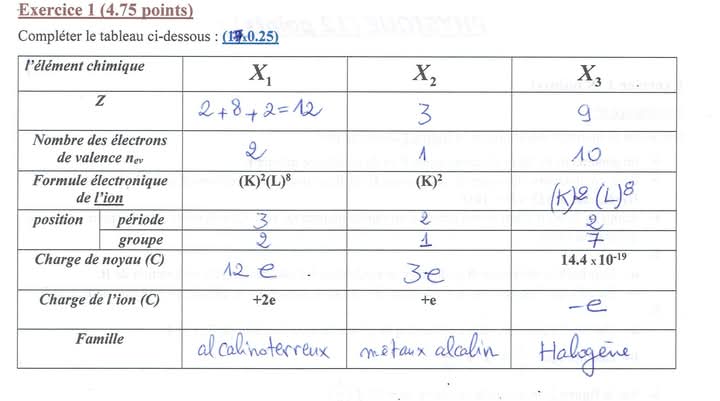 Exercice 1 (4.75 points)
Compléter le tableau ci-dessous : (17x0.25)
l'élément chimique X1 X2 X3
Z 2+8+2=12 3 9
Nombre des électrons de valence nev 2 1 10
Formule électronique de l'ion (K)²(L)⁸ (K)² (K)²(L)⁸
position période 3 2 2
groupe 2 1 7
Charge de noyau (C) 12 e 3e 14.4 x 10⁻¹⁹
Charge de l'ion (C) +2e +e -e
Famille alcalinoterreux métaux alcalin Halogène